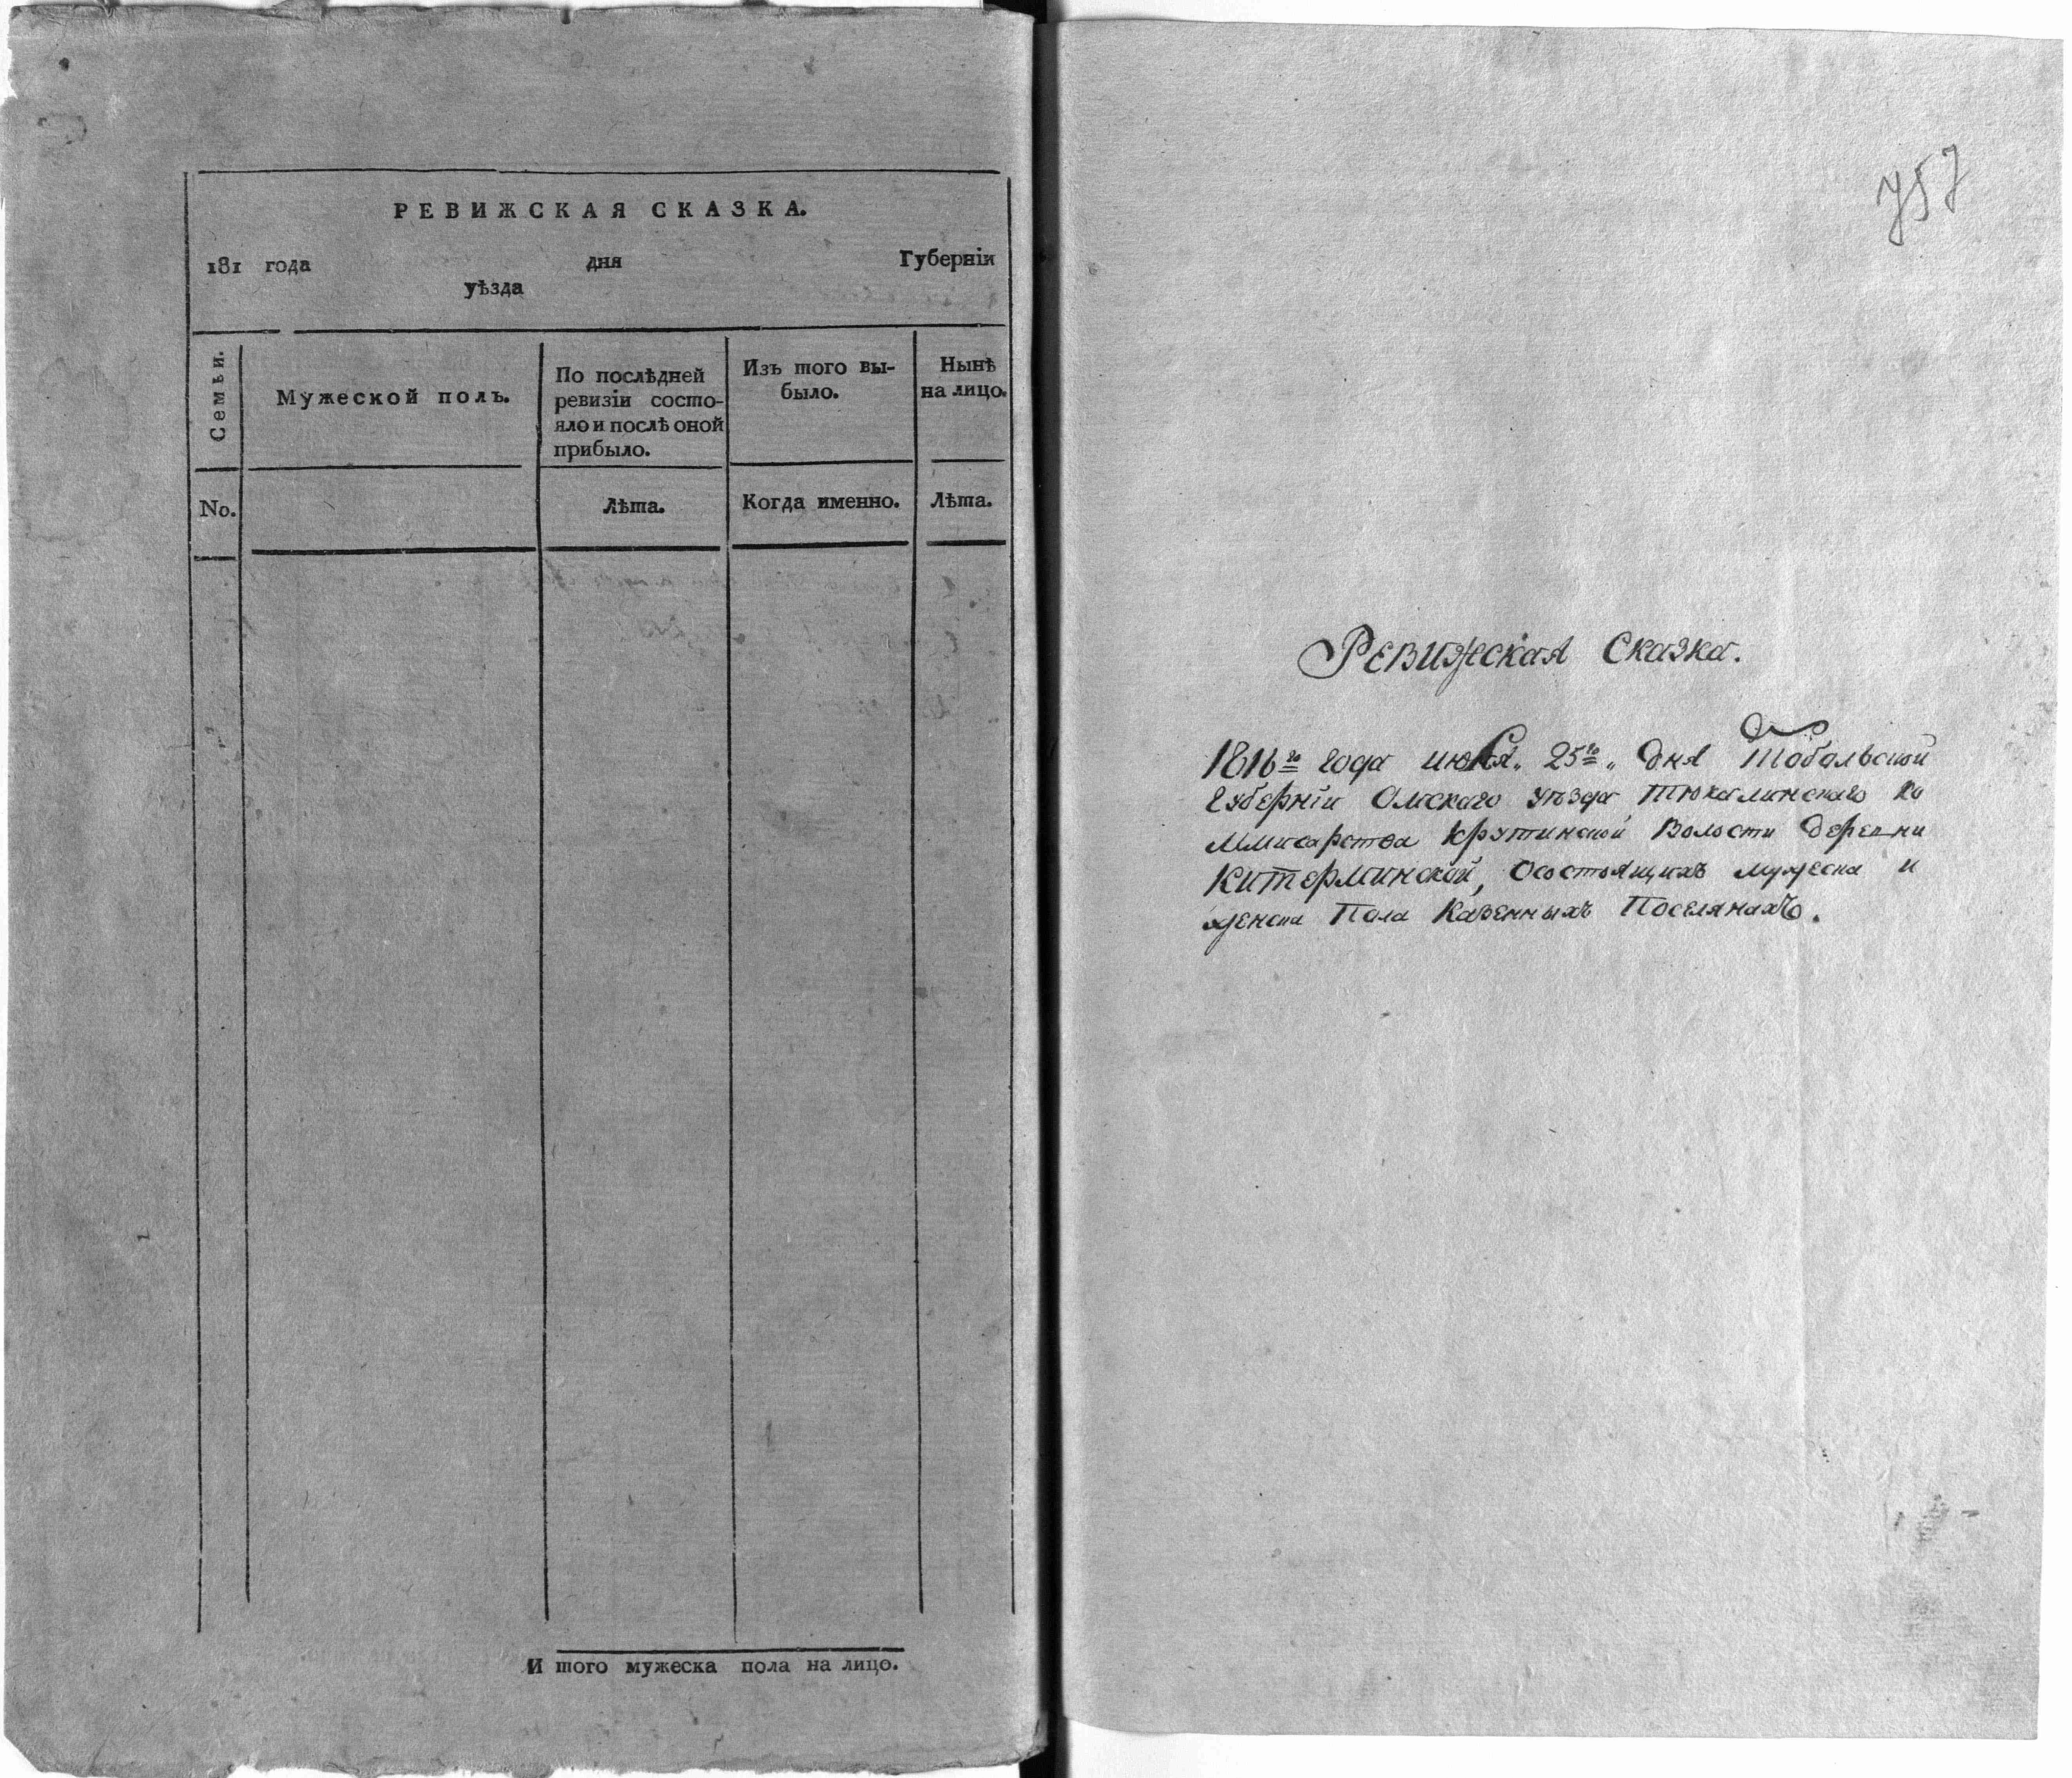 РЕВИЖСКАЯ СКАЗКА.
181 года дня Губерніи
уѣзда
Семьи.
Мужеской полъ.
По послѣдней
ревизіи состо-
яло и послѣ оной
прибыло.
Изъ того вы-
было.
Нынѣ
на лицо.
No.
Лѣта.
Когда именно.
Лѣта.
И того мужеска пола на лицо.
757
Ревижская Сказка.
1816го года 25го дня Тобольской
Губерніи Омскаго уѣзда Тюкалинскаго Ко
ммисарства Крутинской Волости деревни
Китерминской, Осостоящихъ мужеска и
женска Пола Казенныхъ Поселянахъ.